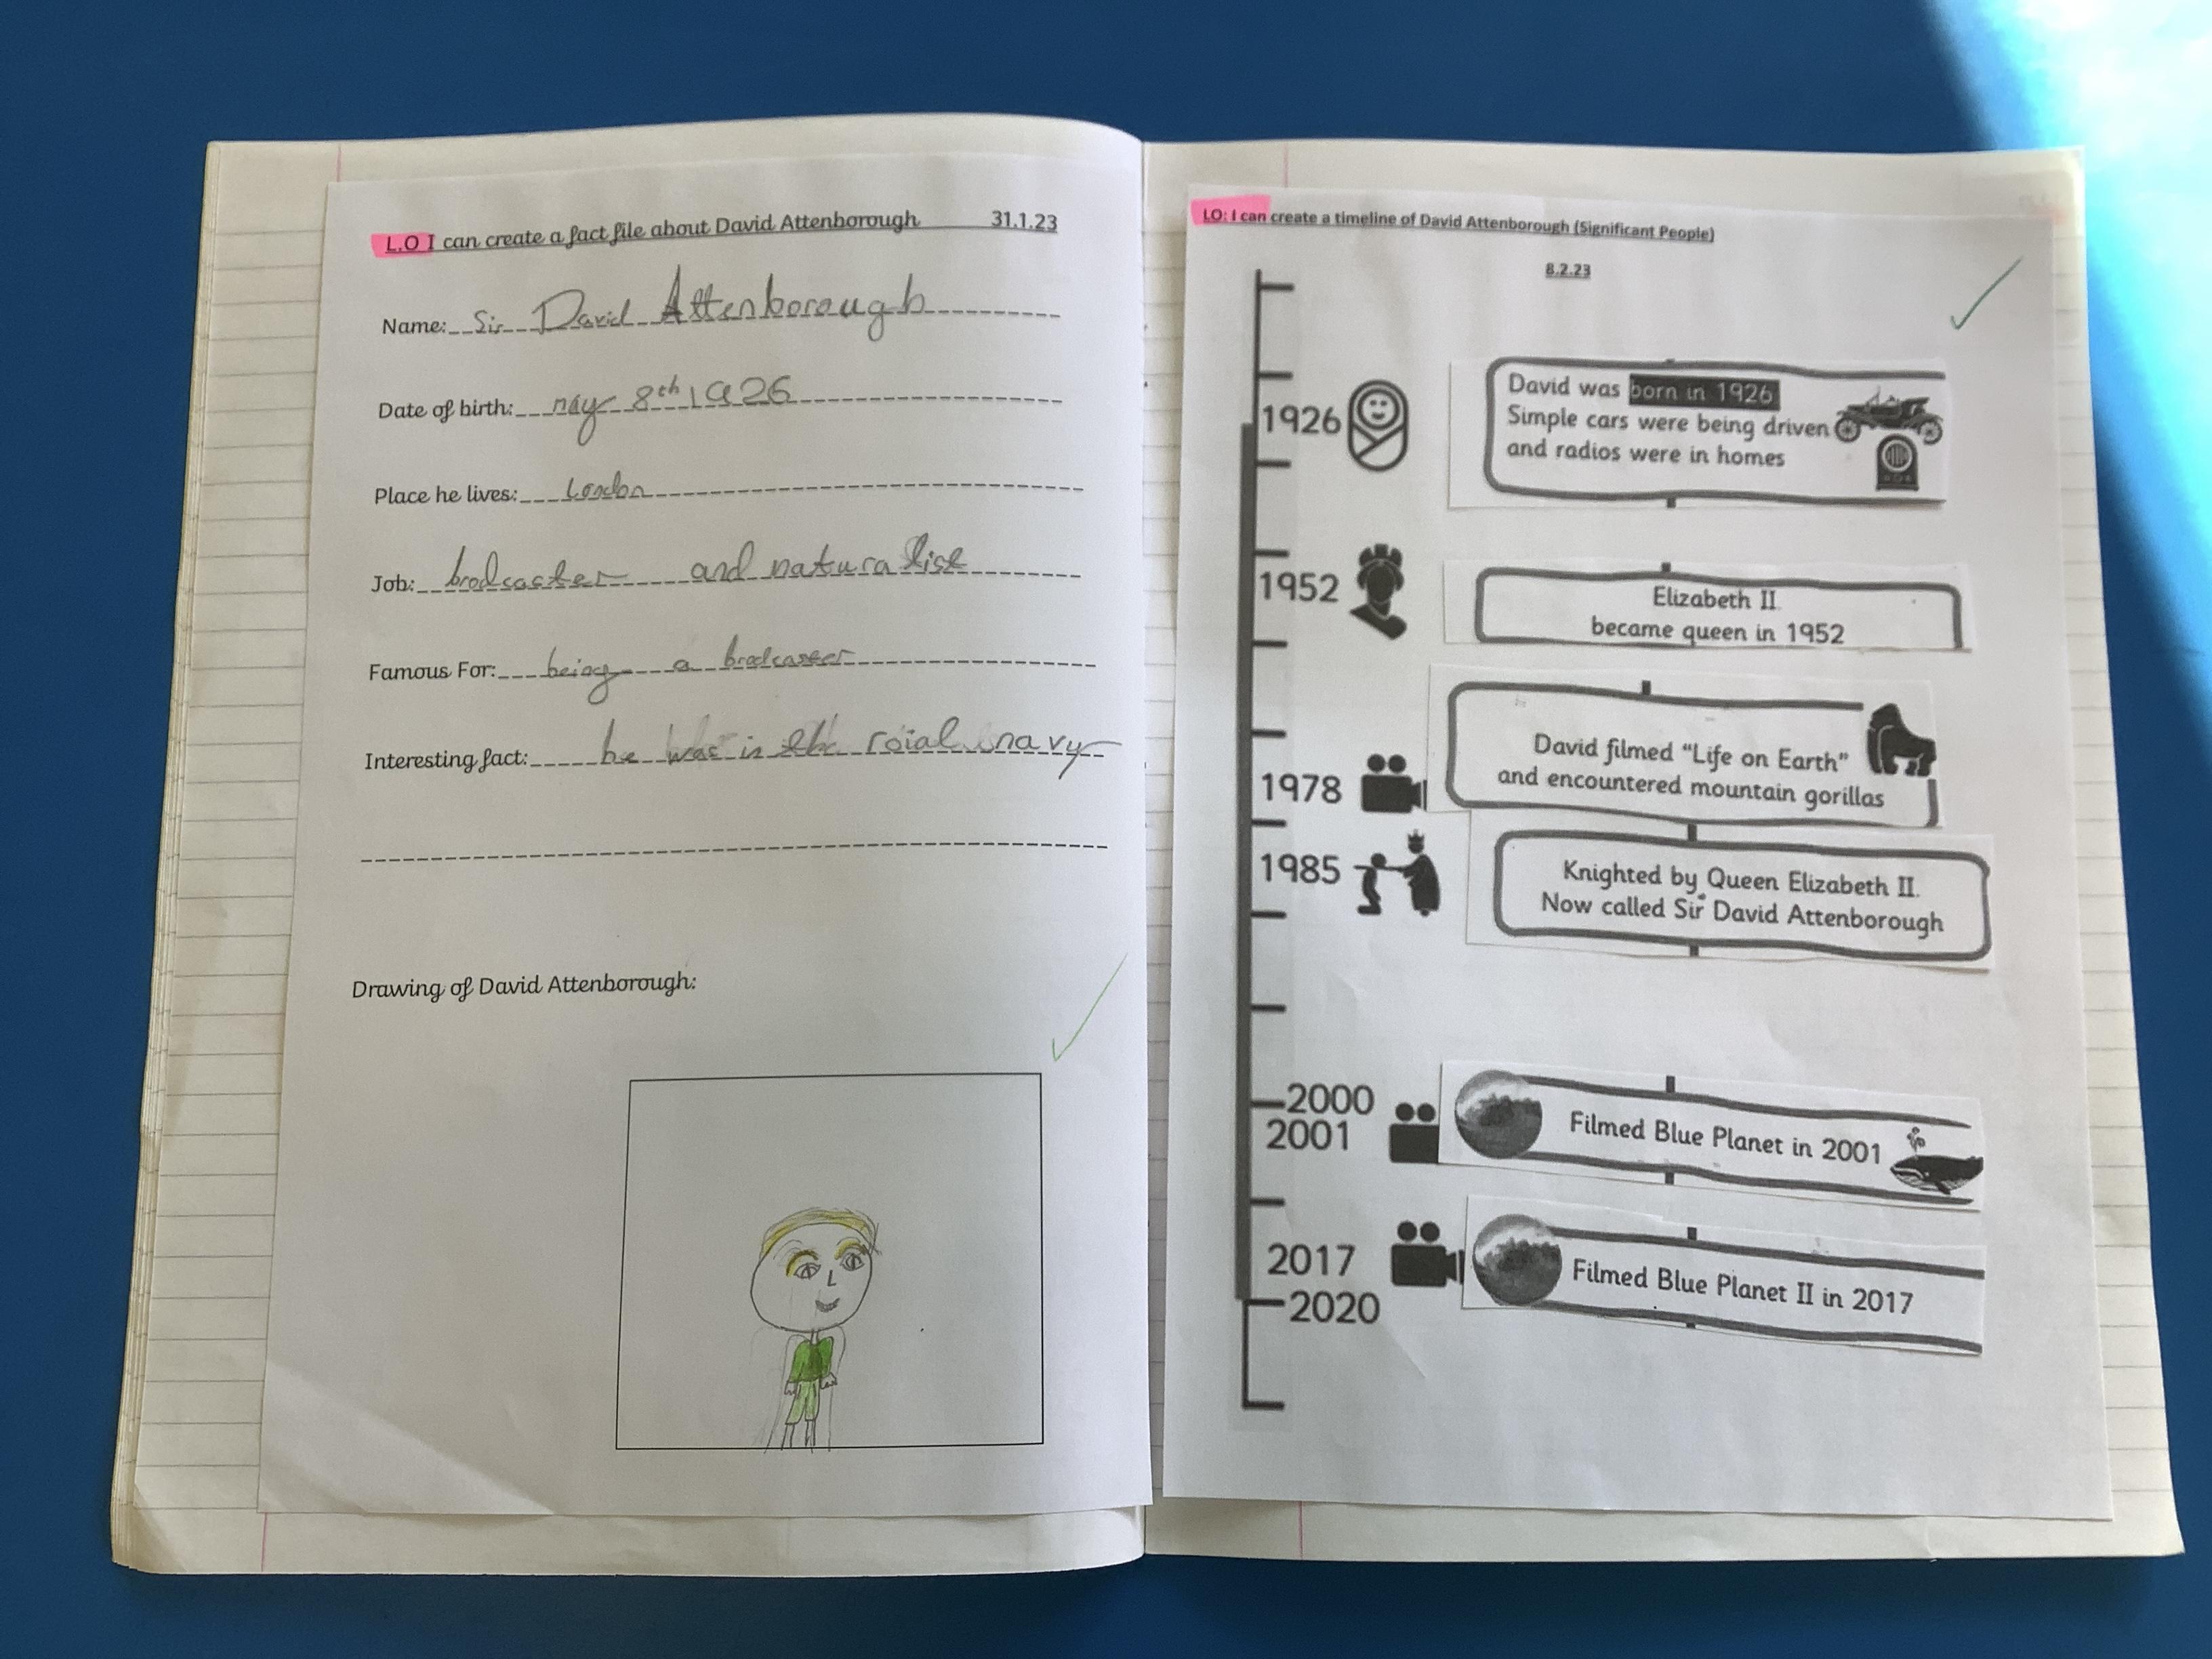 L.O I can create a fact file about David Attenborough 31.1.23
Name: Sir David Attenborough
Date of birth: may 8th 1926
Place he lives: London
Job: brodcaster and naturalist
Famous For: being a brodcaster
Interesting fact: he was in the roial navy
Drawing of David Attenborough:
LO: I can create a timeline of David Attenborough (Significant People)
8.2.23
1926
David was born in 1926
Simple cars were being driven
and radios were in homes
1952
Elizabeth II
became queen in 1952
1978
David filmed “Life on Earth”
and encountered mountain gorillas
1985
Knighted by Queen Elizabeth II.
Now called Sir David Attenborough
2000
2001
Filmed Blue Planet in 2001
2017
Filmed Blue Planet II in 2017
2020